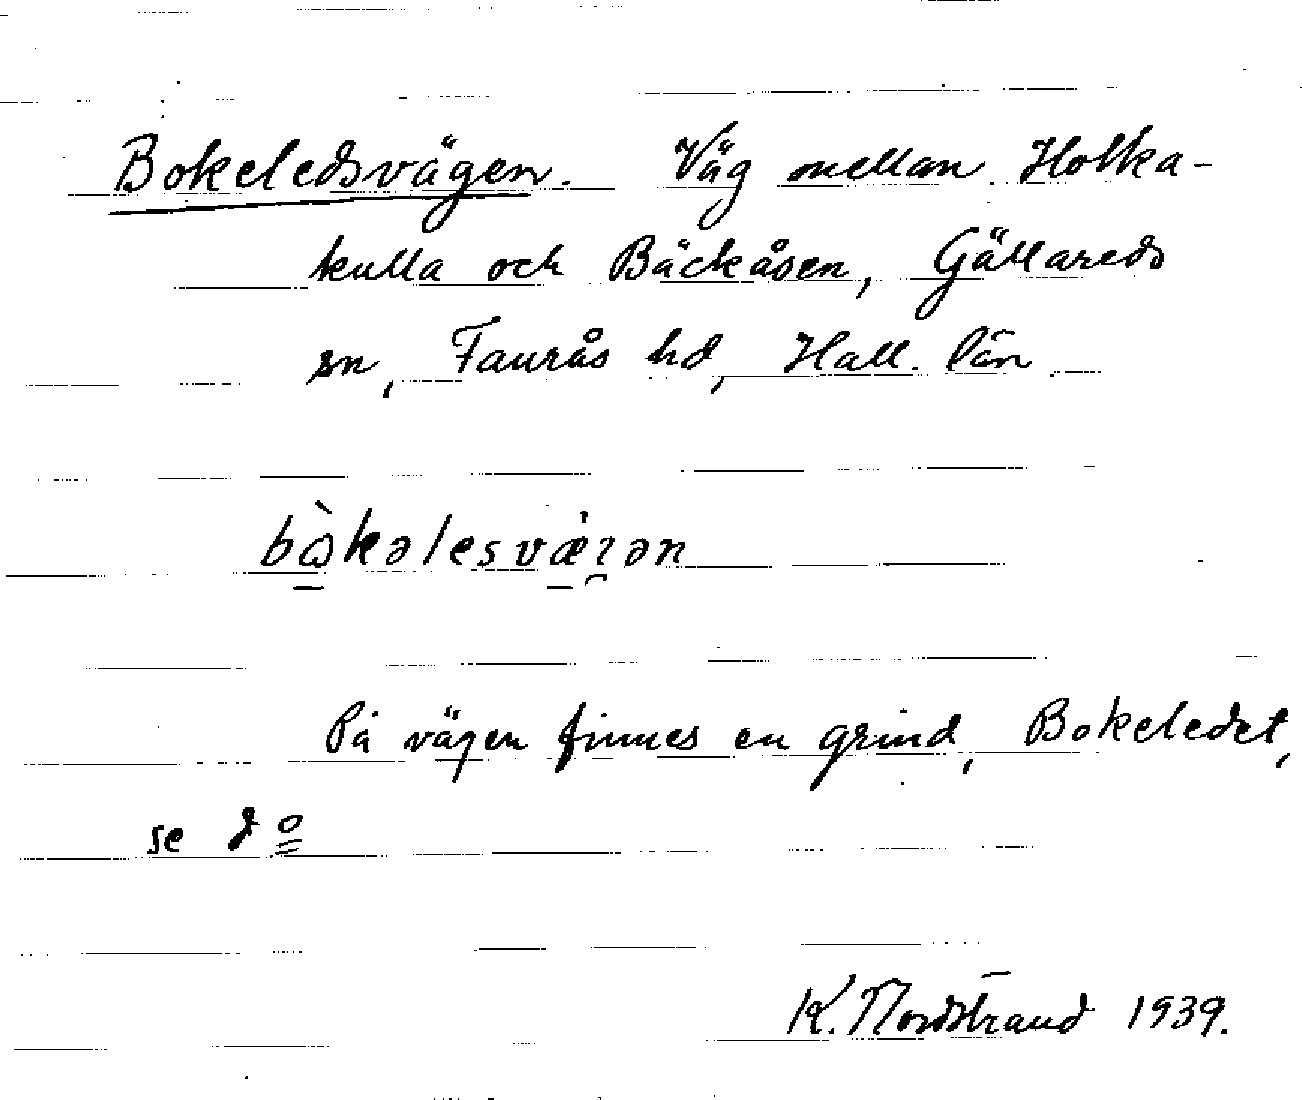 Bokeledsvägen. Väg mellan Holka-
kulla och Bäckåsen, Gällareds
sn, Faurås hd, Hall. län
På vägen finnes en grind, Bokeledet,
se do
K. Nordstrand 1939.